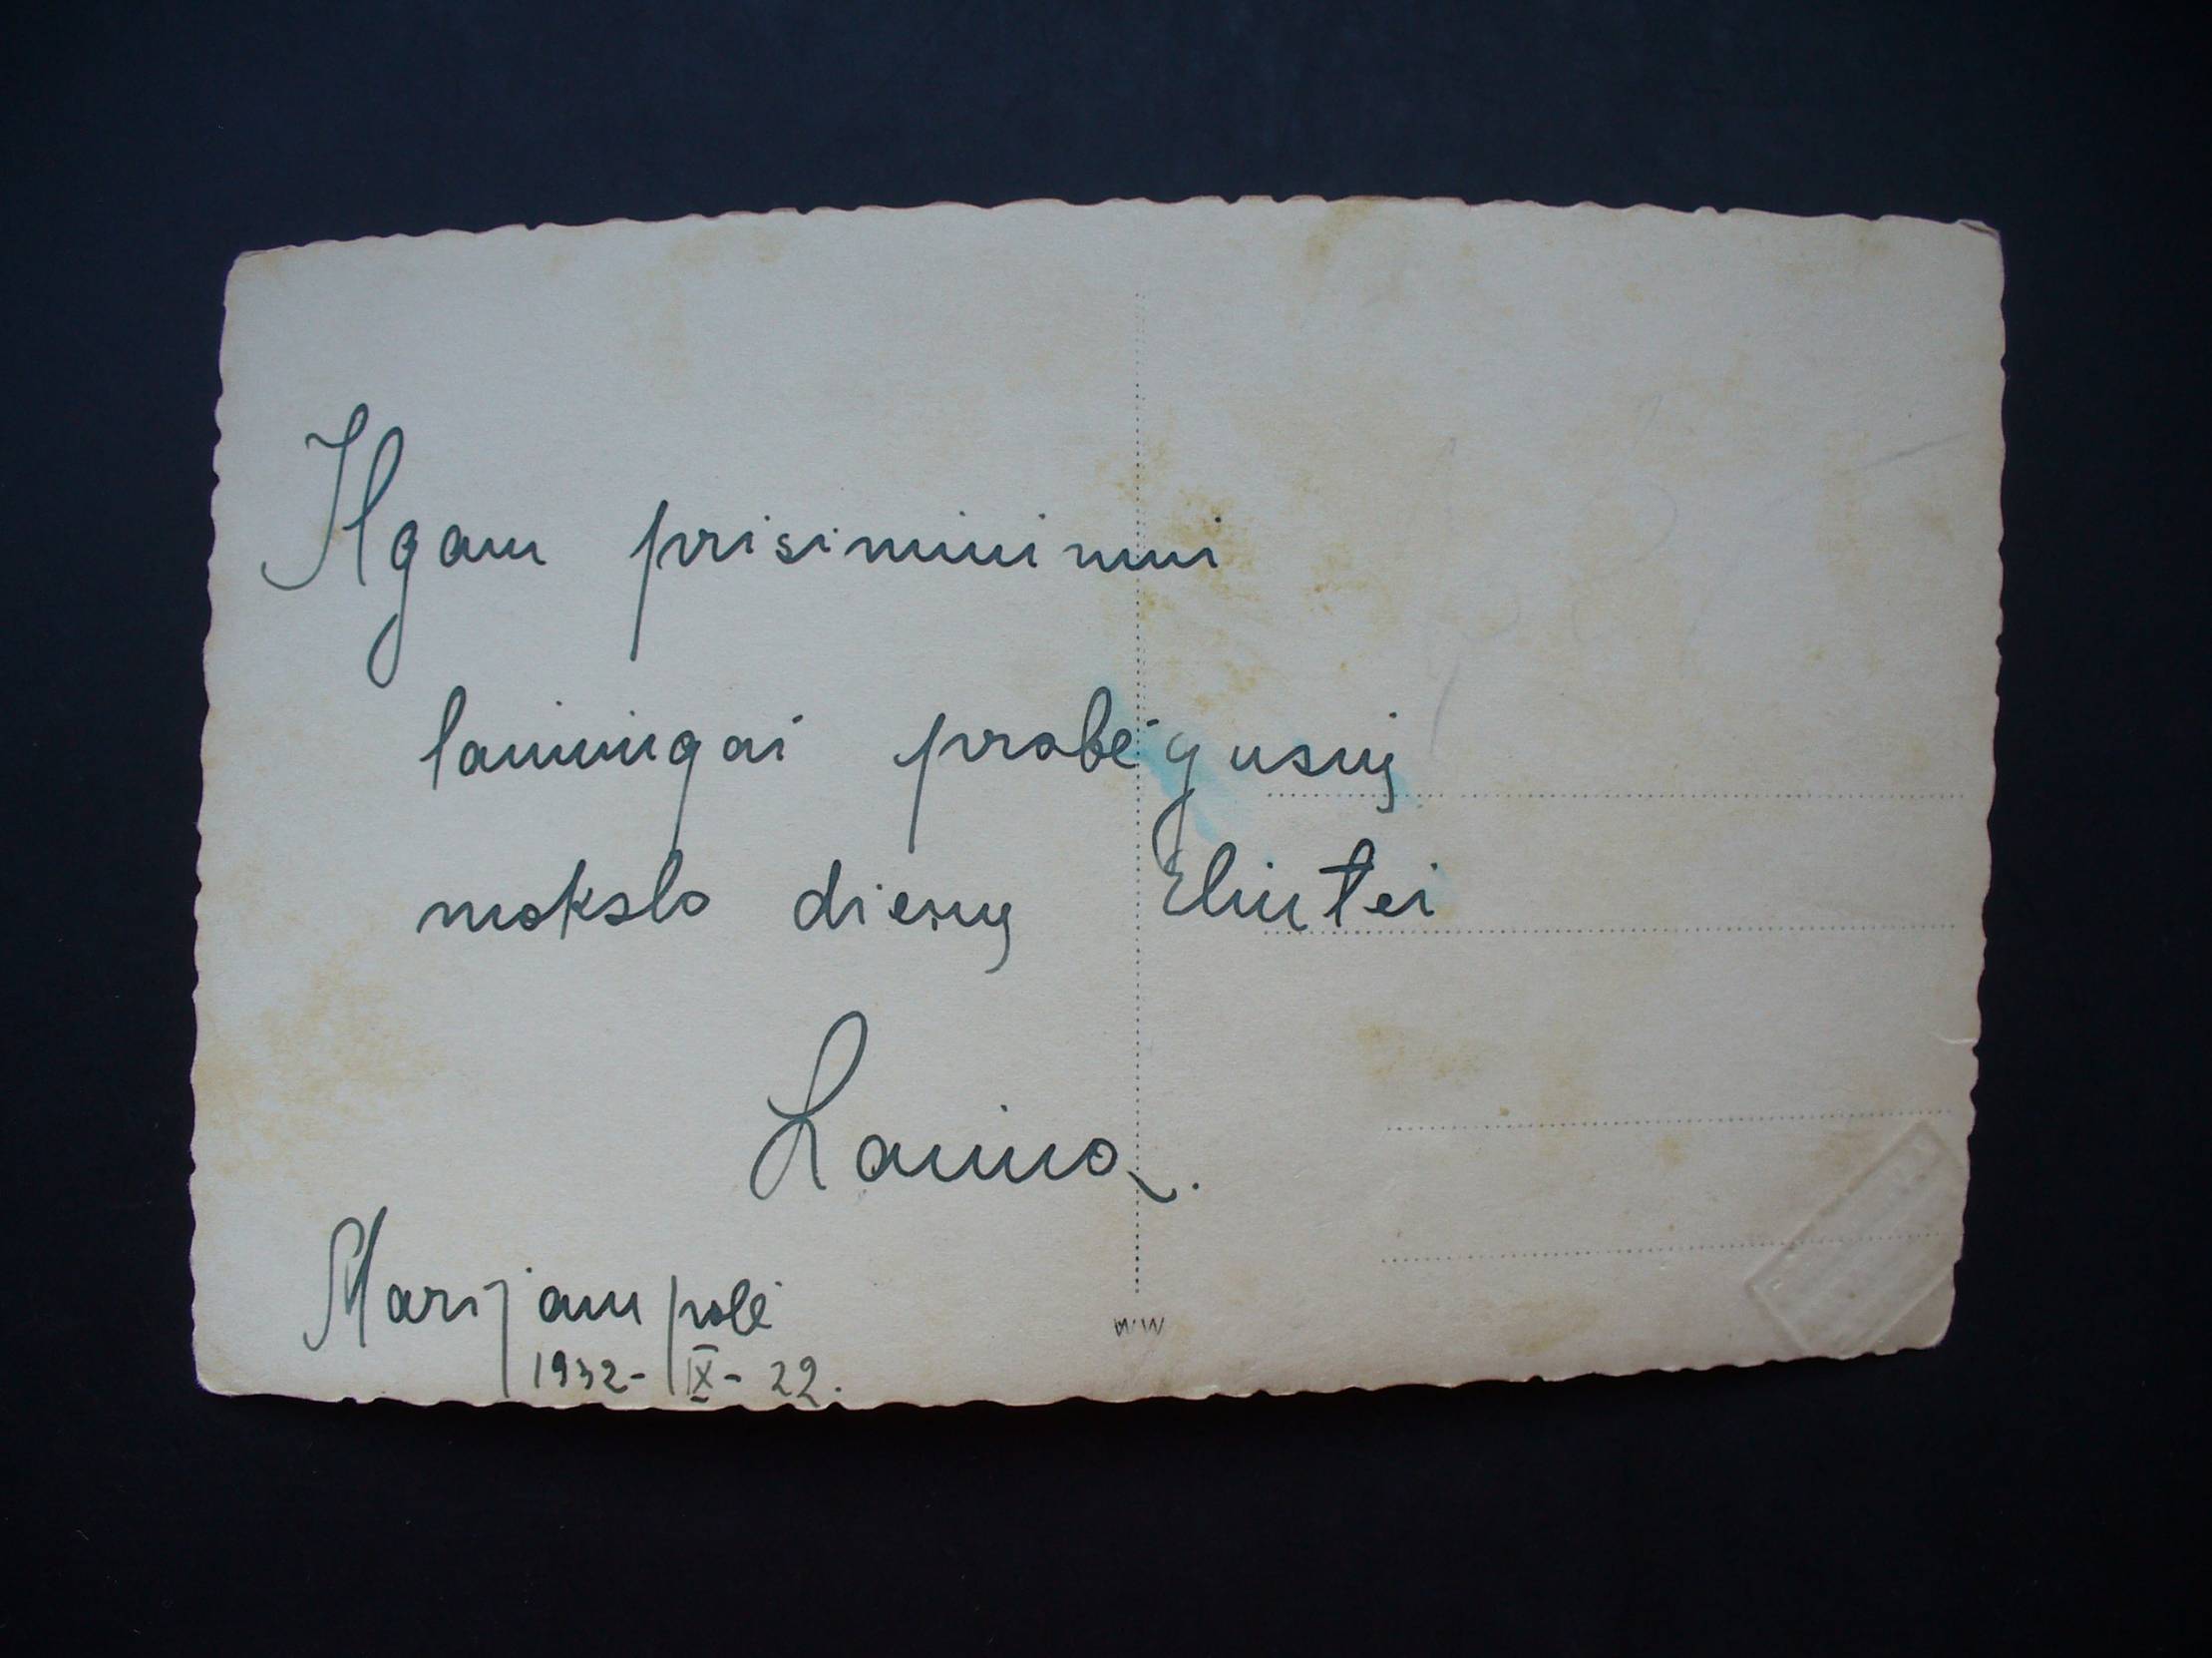 Ilgam prisiminimui
laimingai prabėgusių
mokslo dienų Eliutei
Laima.
Marijampolė
1932-IX-22.
WW